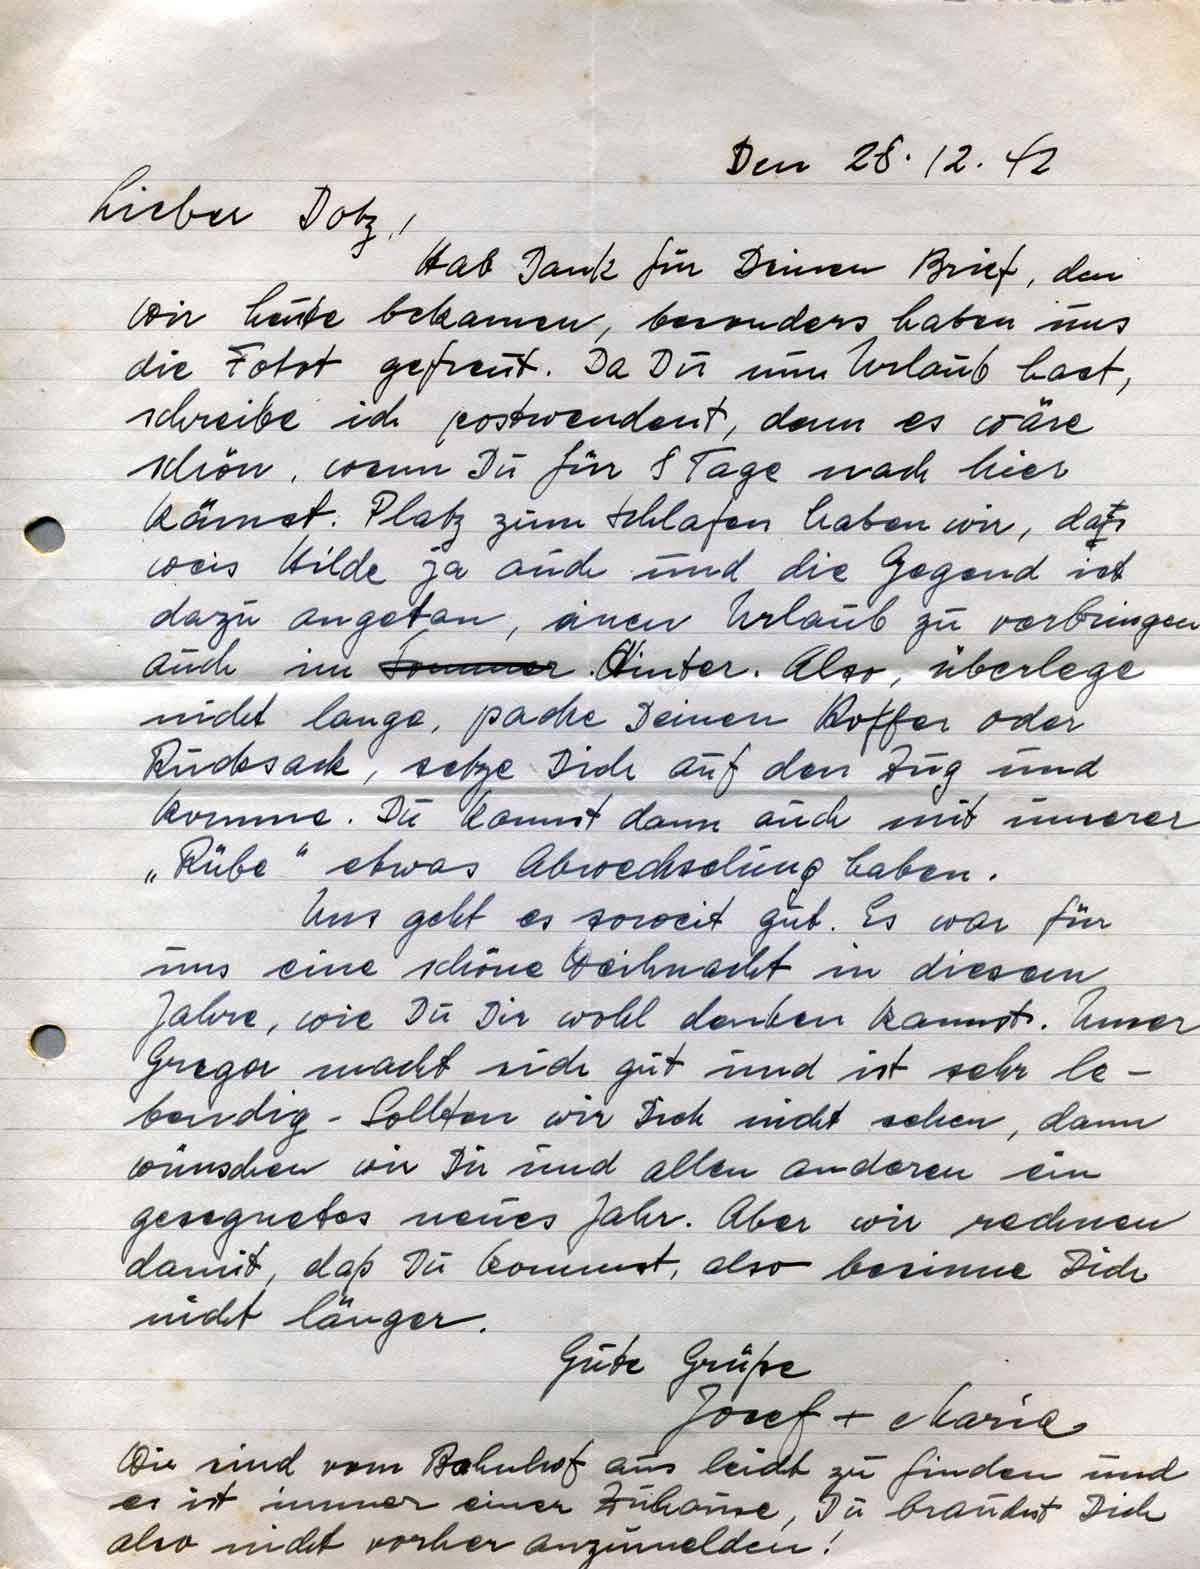 Den 28.12.42
Lieber Dotz!
Hab Dank für Deinen Brief, den
wir heute bekamen, besonders haben uns
die Fotos gefreut. Da Du nun Urlaub hast,
schreibe ich postwendent, denn es wäre
schön, wenn Du für 8 Tage nach hier
kämst. Platz zum schlafen haben wir, das
weis Hilde ja auch und die Gegend ist
dazu angetan, einen Urlaub zu verbringen
auch im Sommer Winter. Also, überlege
nicht lange, packe Deinen Koffer oder
Rucksack, setze Dich auf den Zug und
komme. Du kannst dann auch mit unserer
„Rübe“ etwas Abwechselung haben.
Uns geht es soweit gut. Es war für
uns eine schöne Weihnacht in diesem
Jahre, wie Du Dir wohl denken kannst. Unser
Gregor macht sich gut und ist sehr le-
bendig - Sollten wir Dich nicht sehen, dann
wünschen wir Dir und allen anderen ein
gesegnetes neues Jahr. Aber wir rechnen
damit, daß Du kommst, also besinne Dich
nicht länger.
Gute Grüße
Josef + Maria
Wir sind vom Bahnhof aus leicht zu finden und
es ist immer einer Zuhause, Du brauchst Dich
also nicht vorher anzumelden!